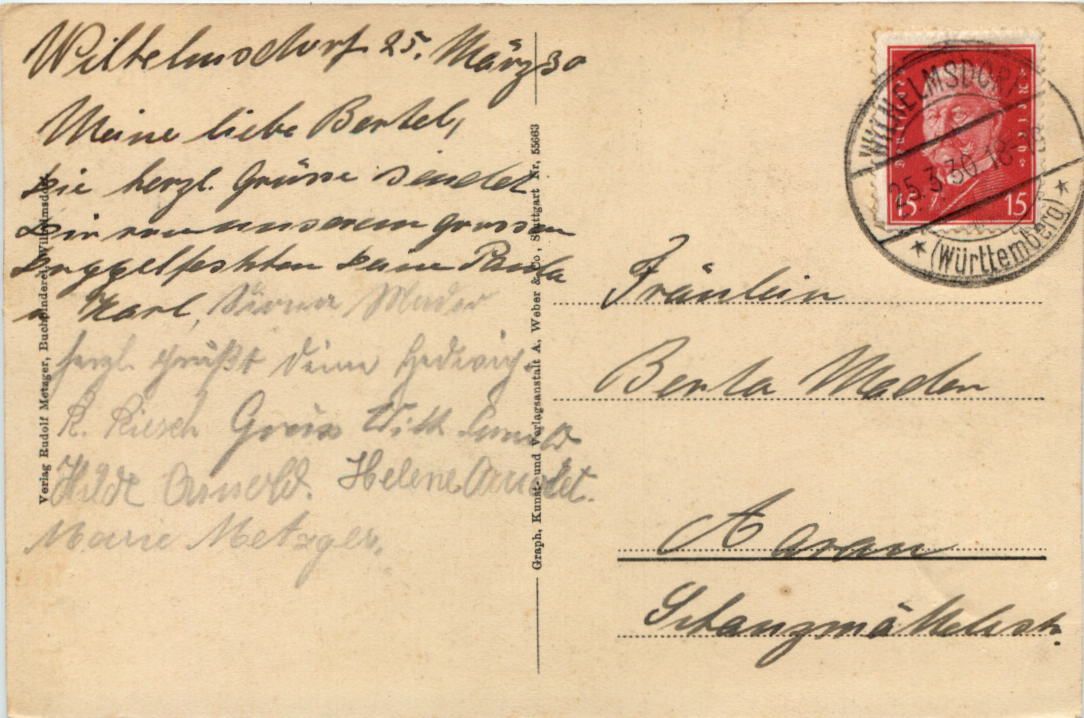 Wilhelmsdorf 25. März 30
Meine liebe Bertel,
Die herzl. Grüsse sendet
Dir von unserem grossen
Deine Paula
u. Karl, Mader
herzl. grüßt Deine Hedwig.
R. Riesch Gruss Wilh. Arnold
Hilde Arnold. Helene Arnold.
Marie Metzger.
Verlag Rudolf Metzger, Buchbinderei, Wilhelmsdorf
Graph. Kunst- und Verlagsanstalt A. Weber & Co., Stuttgart Nr. 55663
Deutsches Reich
15 15
WILHELMSDORF
25.3.30.18-
(Württemberg)
Fräulein
Berta Mader
Aarau
Schanzmättelistr.